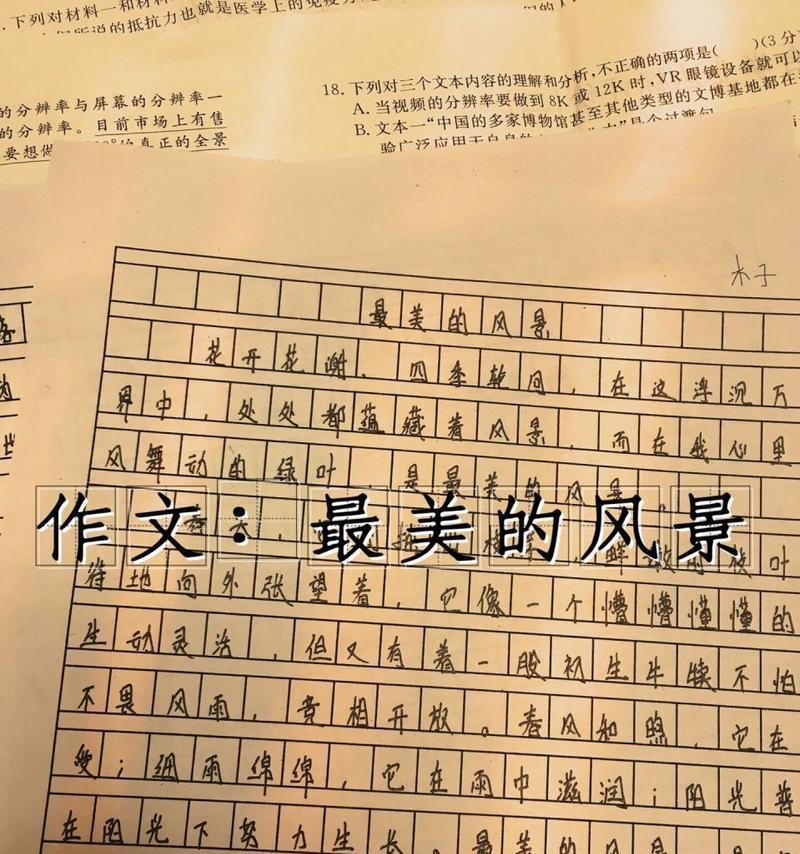 下列对材料一和材料
们所说的抵抗力也就是医学上的免疫
的分辨率与屏幕的分辨率一
的分辨率。目前市场上有售
要想做 的真正的全景
18. 下列对三个文本内容的理解和分析,不正确的两项是( )(3分
A. 当视频的分辨率要做到8K或12K时,VR眼镜设备就可以
B. 文本一“中国的多家博物馆甚至其他类型的文博基地都在
验广泛应用于自身的 是个过渡句
木子
最美的风景
花开花谢,四季轮回,在这浮沉万
界中,处处都蕴藏着风景,而在我心里
风舞动的绿叶,是最美的风景。
作文:最美的风景
待地向外张望着,它像一个懵懵懂懂的
生动灵活,但又有着一股初生牛犊不怕
不畏风雨,竞相开放。春风和煦,它在
受;细雨绵绵,它在雨中滋润;阳光普
在阳光下努力生长。最美的风景,是